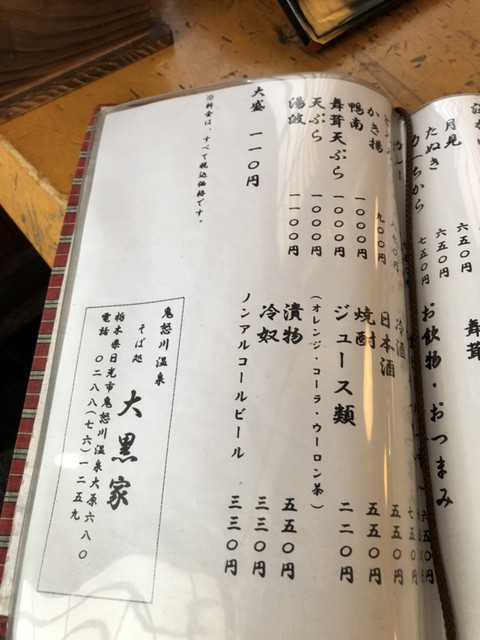 月見 六五〇円
たぬき 六五〇円
七五〇円
舞茸
お飲物・おつまみ
カレー
かき揚 九〇〇円
鴨南 一〇〇〇円
舞茸天ぷら 一〇〇〇円
天ぷら 一〇〇〇円
湯波 一〇〇〇円
大盛 一一〇円
※料金は、すべて税込価格です。
冷酒 七五〇円
日本酒 五五〇円
焼酎 五五〇円
ジュース類 二二〇円
(オレンジ・コーラ・ウーロン茶)
漬物 五五〇円
冷奴 三三〇円
ノンアルコールビール 三三〇円
鬼怒川温泉
そば処 大黒家
栃木県日光市鬼怒川温泉大原六八〇
電話 〇二八八(七六)一二五九